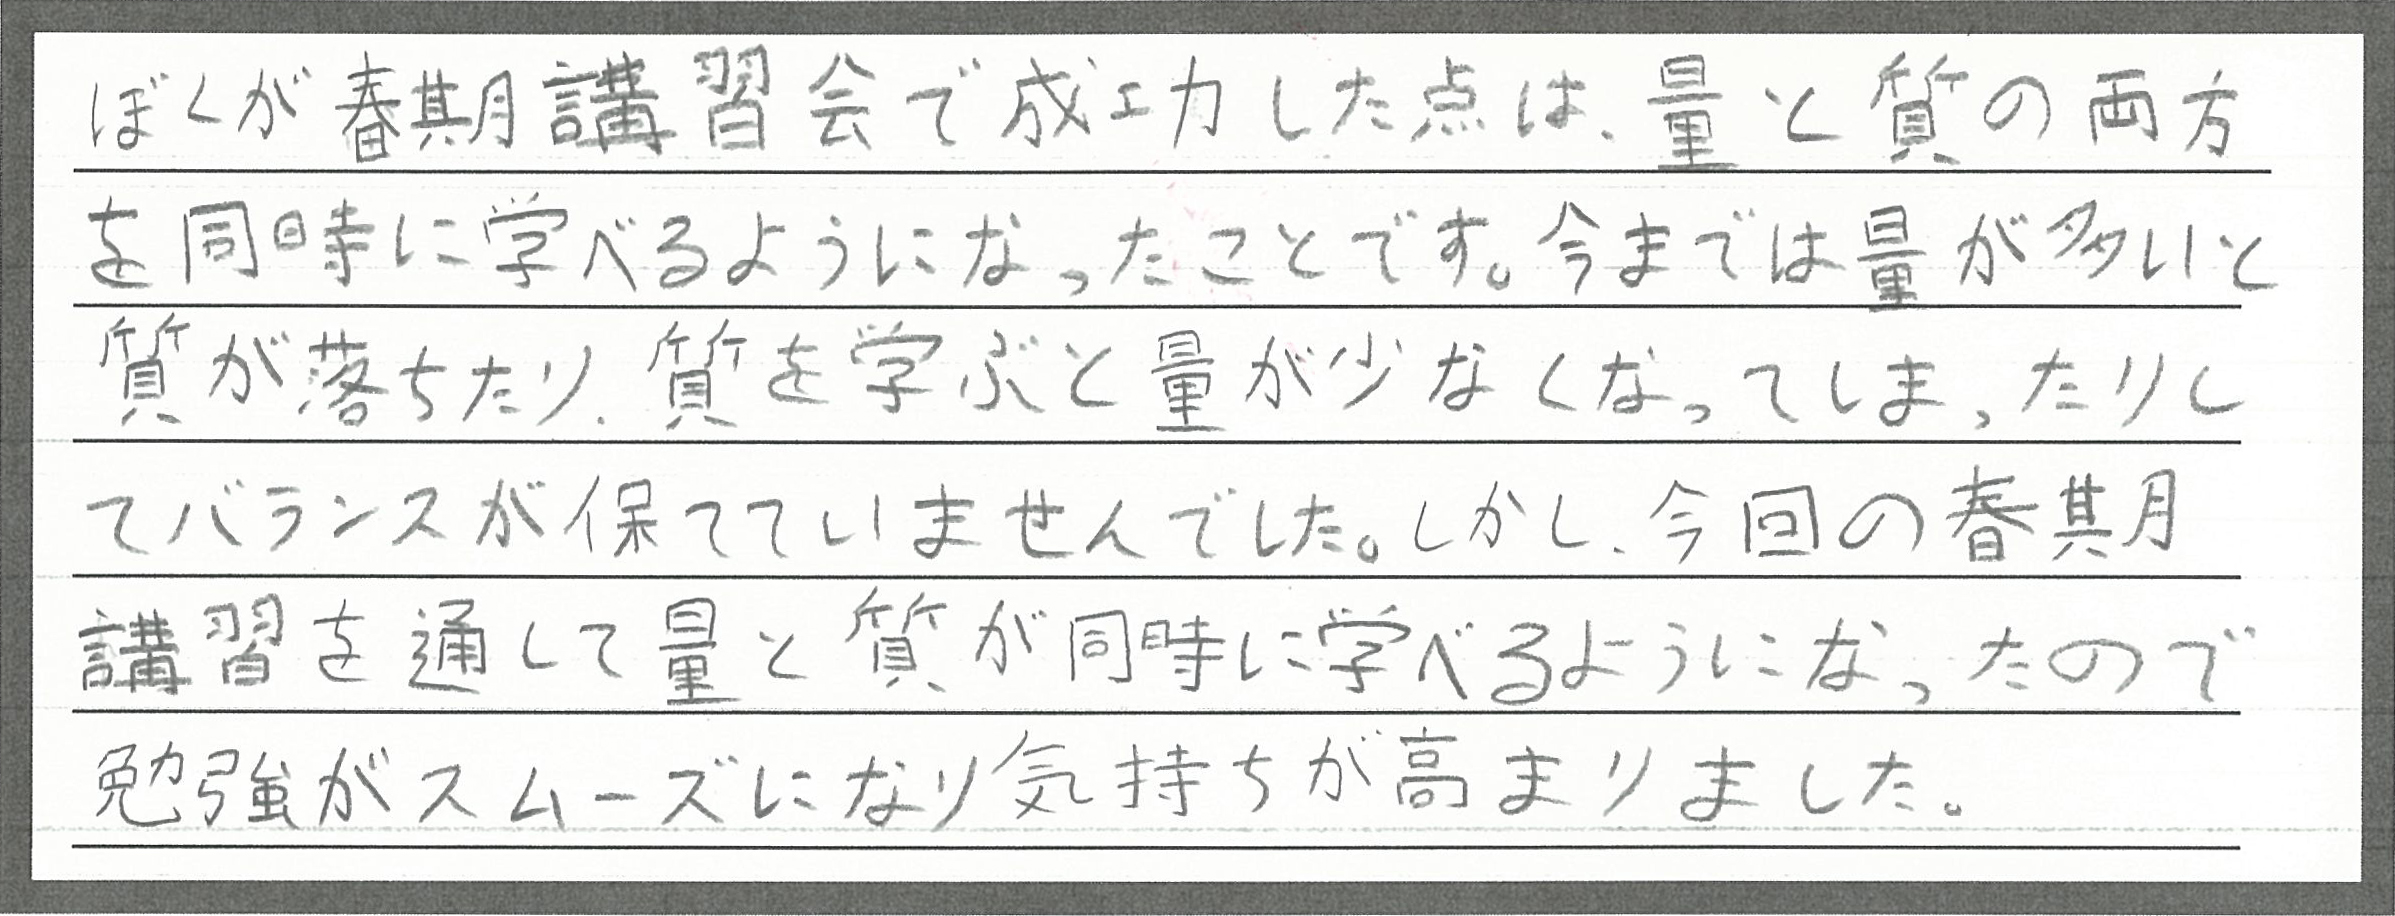 ぼくが春期講習会で成功した点は、量と質の両方
を同時に学べるようになったことです。今までは量が多いと
質が落ちたり、質を学ぶと量が少なくなってしまったりし
てバランスが保てていませんでした。しかし、今回の春期
講習を通して量と質が同時に学べるようになったので
勉強がスムーズになり気持ちが高まりました。